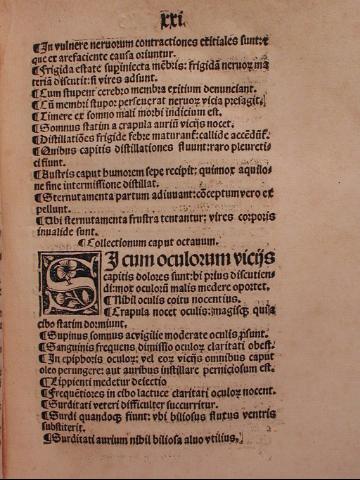 xxi.
¶In vulnere neruorum contractiones exitiales sunt: &
que ex arefaciente causa oriuntur.
¶Frigida estate supiniecta mẽbris: frigidã neruoꝝ ma
teriã discutit: si vires adsunt.
¶Cum stupent cerebro membra exitium denunciant.
¶Cũ membri stupor perseuerat neruoꝝ vicia presagit.
¶Timere ex somno mali morbi indicium est.
¶Somnus statim a crapula auriũ vicijs nocet.
¶Distillatiões frigide febre maturant: callide accedũt.
¶Quibus capitis distillationes fluunt: raro pleureti-
ci fiunt.
¶Austris caput humorem sepe recipit: quin mox aquilo-
ne fine intermissione distillat.
¶Sternutamenta partum adiuuant: cõceptum vero ex
pellunt.
¶Ubi sternutamenta frustra tentantur: vires corporis
inualide sunt.
¶Collectionum caput octauum.
SI cum oculorum vicijs
capitis dolores sunt: hi prius discutien-
di: mox oculorũ malis medere oportet.
¶Nihil oculis coitu nocentius.
¶Crapula nocet oculis: magisq̃ quia
cibo statim dormiunt.
¶Supinus somnus ac vigilie moderate oculis ꝓsunt.
¶Sanguinis frequens dimissio oculoꝝ claritati obest.
¶In epiphoris oculoꝝ: vel eoꝝ vicijs omnibus caput
oleo perungere: aut auribus instillare perniciosum est.
¶Lippienti medetur deiectio
¶Frequẽtiores in cibo lactuce claritati oculoꝝ nocent.
¶Surditati veteri difficulter succurritur.
¶Surdi quandoqꝫ fiunt: vbi biliosus fluxus ventris
substiterit.
¶Surditati aurium nihil biliosa aluo vtilius.